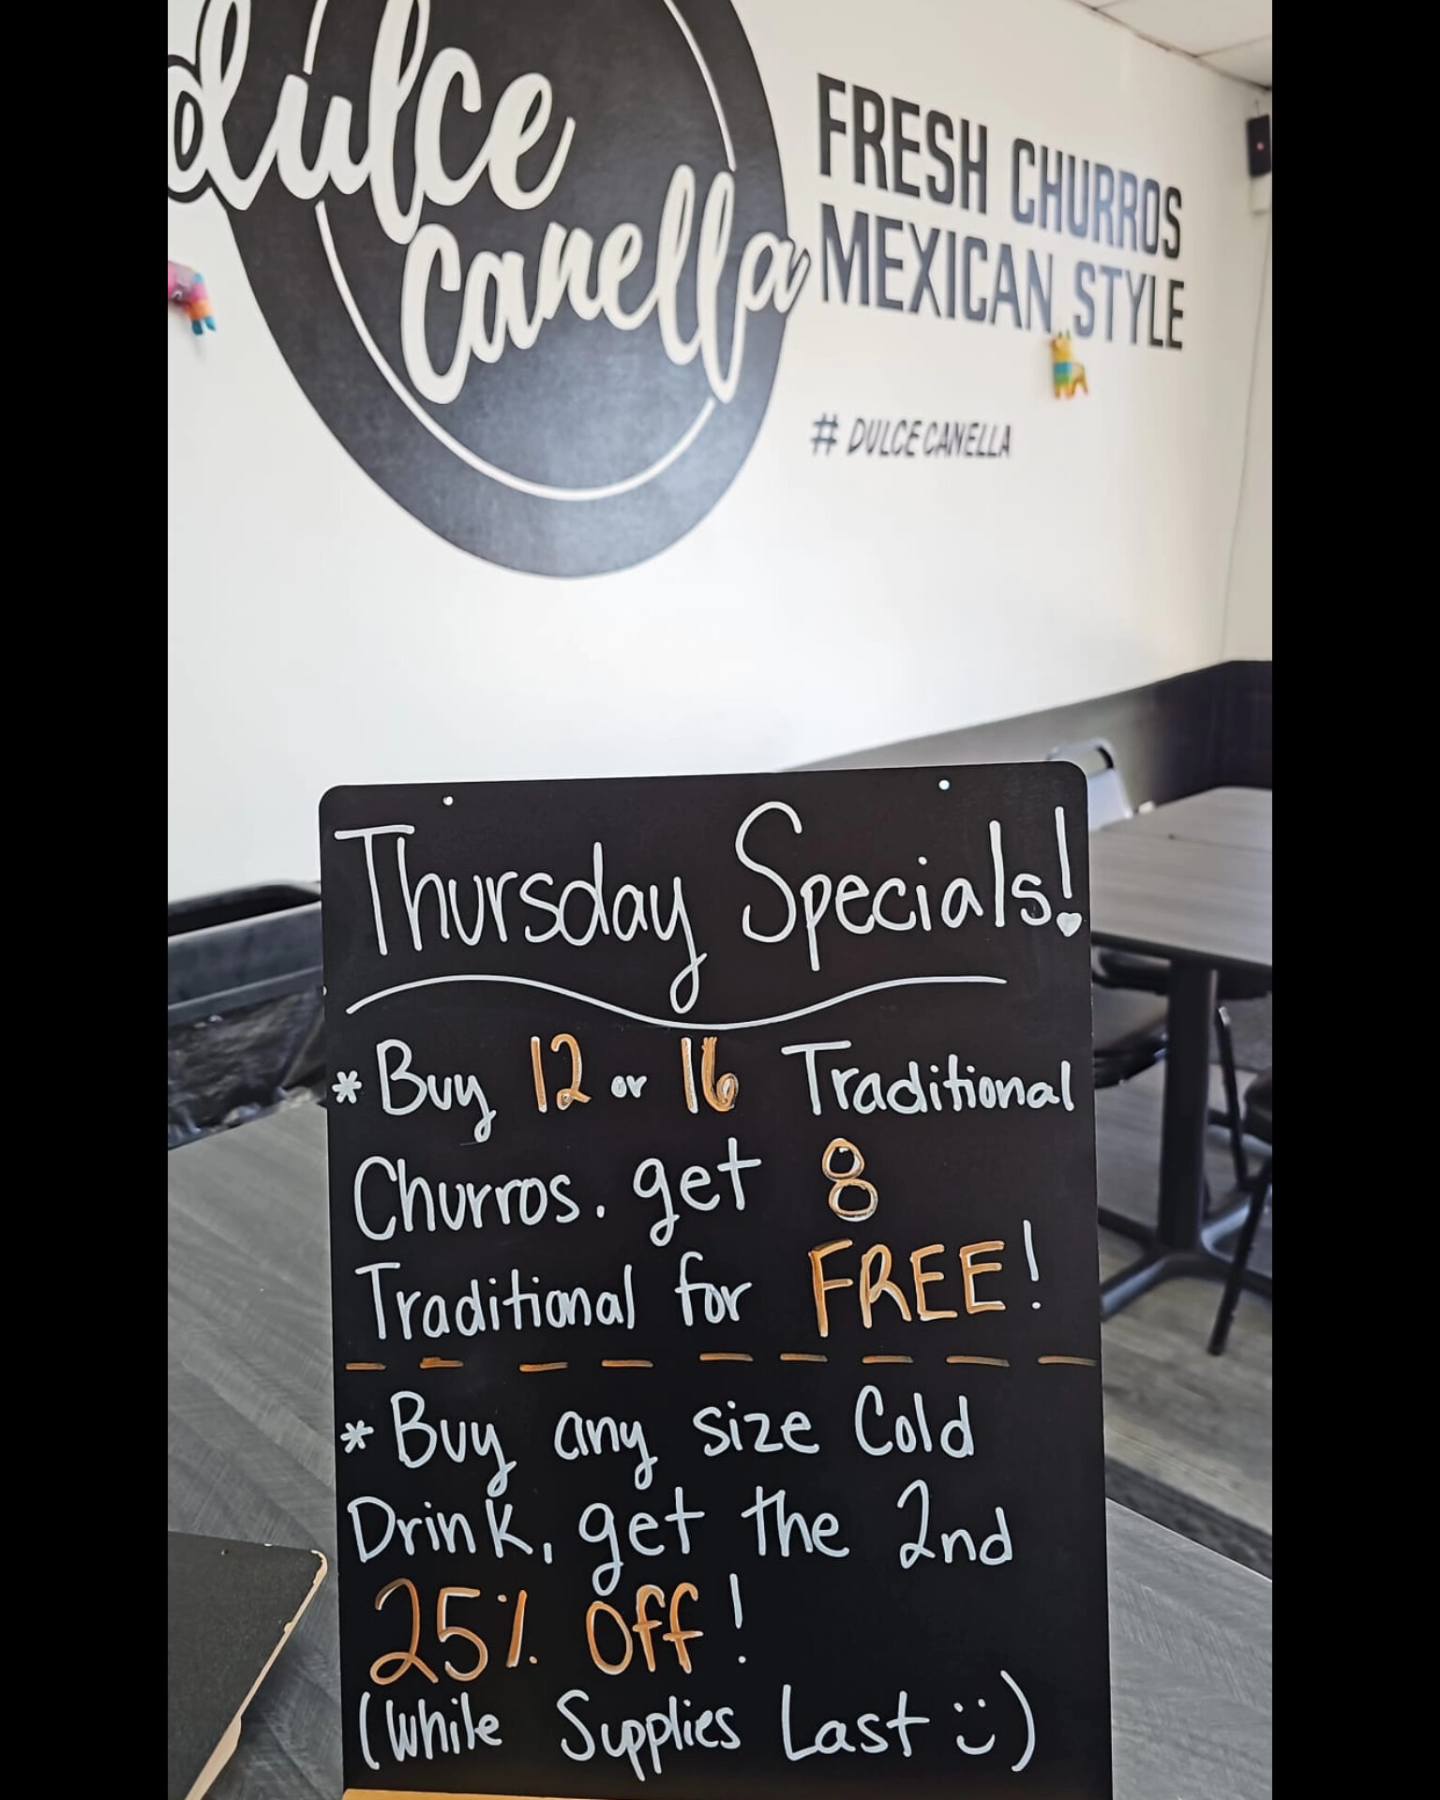 dulce
canella
FRESH CHURROS
MEXICAN STYLE
# DULCECANELLA
Thursday Specials!
* Buy 12 or 16 Traditional
Churros. get 8
Traditional for FREE!
* Buy any size Cold
Drink, get the 2nd
25% Off!
(While Supplies Last :))